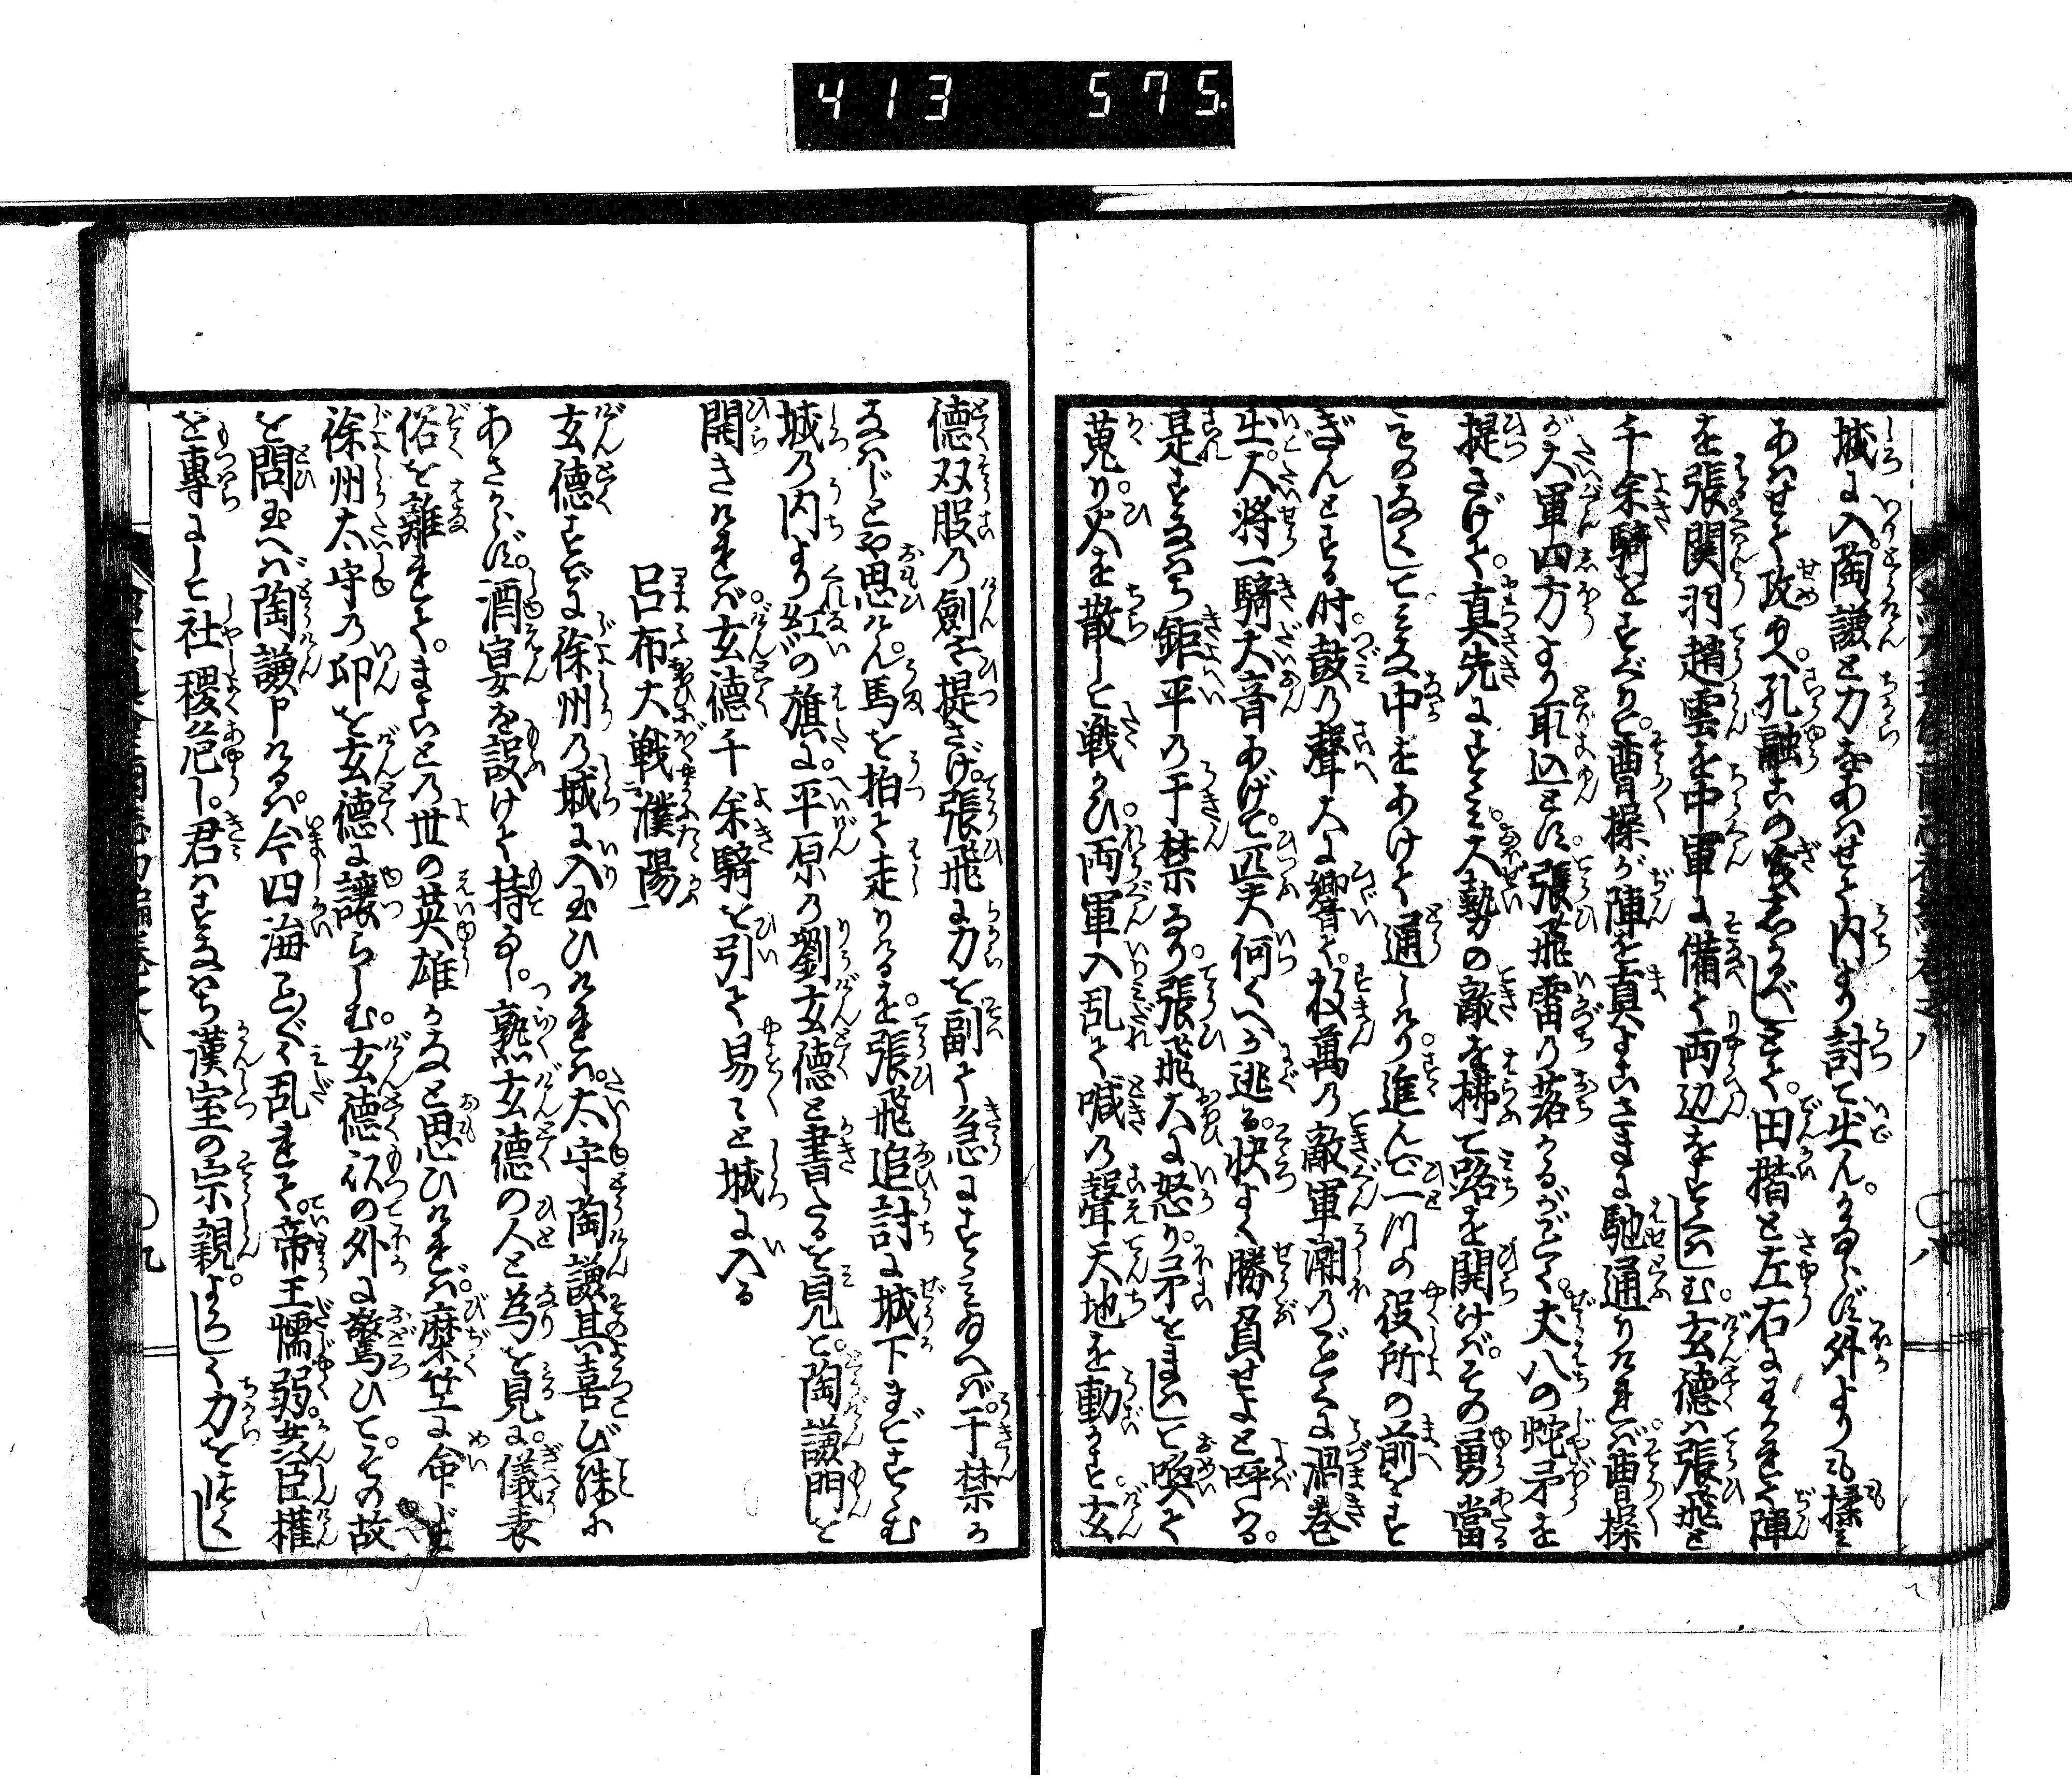 413 575
城に入。陶謙と力をあはせて内より討て出ん。かならず外よりも揉
あはせて攻玉へ。孔融この義しかるべしとて。田楷と左右にわかれて陣
を張関羽趙雲を中軍に備て両辺をすくはしむ。玄徳は張飛と
千余騎をすぐりて。曹操が陣を真よこさまに馳通りければ。曹操
が大軍四方より取込とす。張飛雷の落かるがごとく。丈八の蛇矛を
提さげて。真先にすゝみ。大勢の敵を払て路を開けば。その勇當
ものなくして。みな中をあけて通しけり。進んで一川の役所の前をす
ぎんとする時。鼓の聲大に響て。数萬の敵軍潮のごとくに渦巻
出。大将一騎大音あげて。匹夫何くへか逃る。快よく勝負せよと呼はる。
是すなはち鉅平の于禁なり。張飛大に怒り。矛をまはして喚て
蒐り。火を散して戦かひ。両軍入乱て喊の聲天地を動かす。玄
徳双股の劍を提さげ。張飛に力を副て急にすゝみ玉へば。于禁か
なはじとや思ひけん。馬を拍て走りけるを。張飛追討に城下まですゝむ
城の内より紅の旗に。平原の劉玄徳と書たるを見と。陶謙門を
開きければ。玄徳千余騎を引て易々と城に入る
呂布大戦濮陽
玄徳すでに徐州の城に入玉ひければ。太守陶謙其喜び殊に
あさからず。酒宴を設けて持なし。熟玄徳の人と為を見に。儀表
俗を離れて。まことの世の英雄かなと思ひければ。糜竺に命じ
徐州太守の印を玄徳に讓らしむ。玄徳以の外に驚ひて。その故
を問玉へば陶謙申けるは。今四海みだれ乱れて。帝王懦弱姦臣權
を專にして社稷危し。君はすなはち漢室の宗親。よろしく力をつくし